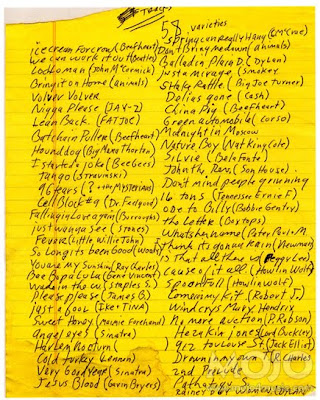 Tracks
58 varieties
ice cream for crow (Beefheart)
we can work it out (Beatles)
Lowdown (John McCormick)
Bring it on Home (animals)
Volver Volver
Nigga Please (JAY-Z)
Lean Back (FAT JOE)
Batchain Puller (Beefheart)
Hound dog (Big Mama Thornton)
I started a joke (BeeGees)
Tango (Stravinski)
96 years (? and the Mysterians)
Cell Block #9 (Dr. Feelgood)
Falling in love again (Burroughs)
just wanna see (Stones)
Fever (Little Willie John)
So Long its been Good (woody)
You are my Sunshine (Ray Charles)
Bee Bop a Lula (Gene Vincent)
Wade in the w (Staples S.)
please please (James B)
Just a fool (Ike & TINA)
Sweet Honey (Mamie
angel eyes (Sinatra)
Harlem Nocturn
Cold turkey Lennon
Very Good year (Sinatra)
Jesus Blood (Gavin Bryers)
Spring can Really Hang (C McRae)
Don't Bring me down (animals)
Ballad in Plain D (Dylan)
Just a Mirage (Smokey
Shake Rattle (Big Joe Turner)
Delias gone (Cash)
China Pig (Beefheart)
Green automobile (corso)
Midnight in Moscow
Nature Boy (Nat King Cole)
Silvie (Belafonte)
John the Rev. (Son House)
Don't mind people grinning
16 tons (Tennessee Ernie F)
Ode to Billy (Bobbie Gentry)
the Letter (Boxtops)
Whats her name (Peter Paul M
Think its gonna Rain (Newman)
Is that all there is (Peggy Lee)
Cause of it all (Howlin Wolf)
Spoonfull (Howlin wolf)
Come in my Kit (Robert J.)
Wind crys Mary Hendrix
No more auction (P. Robson)
(Lord Buckley)
912 Toulouse St. (Jack Elliot)
Drown in my own T (R. Charles
2nd Prelude
Pathatagy S
rainey Day Women DYLAN
MOJO